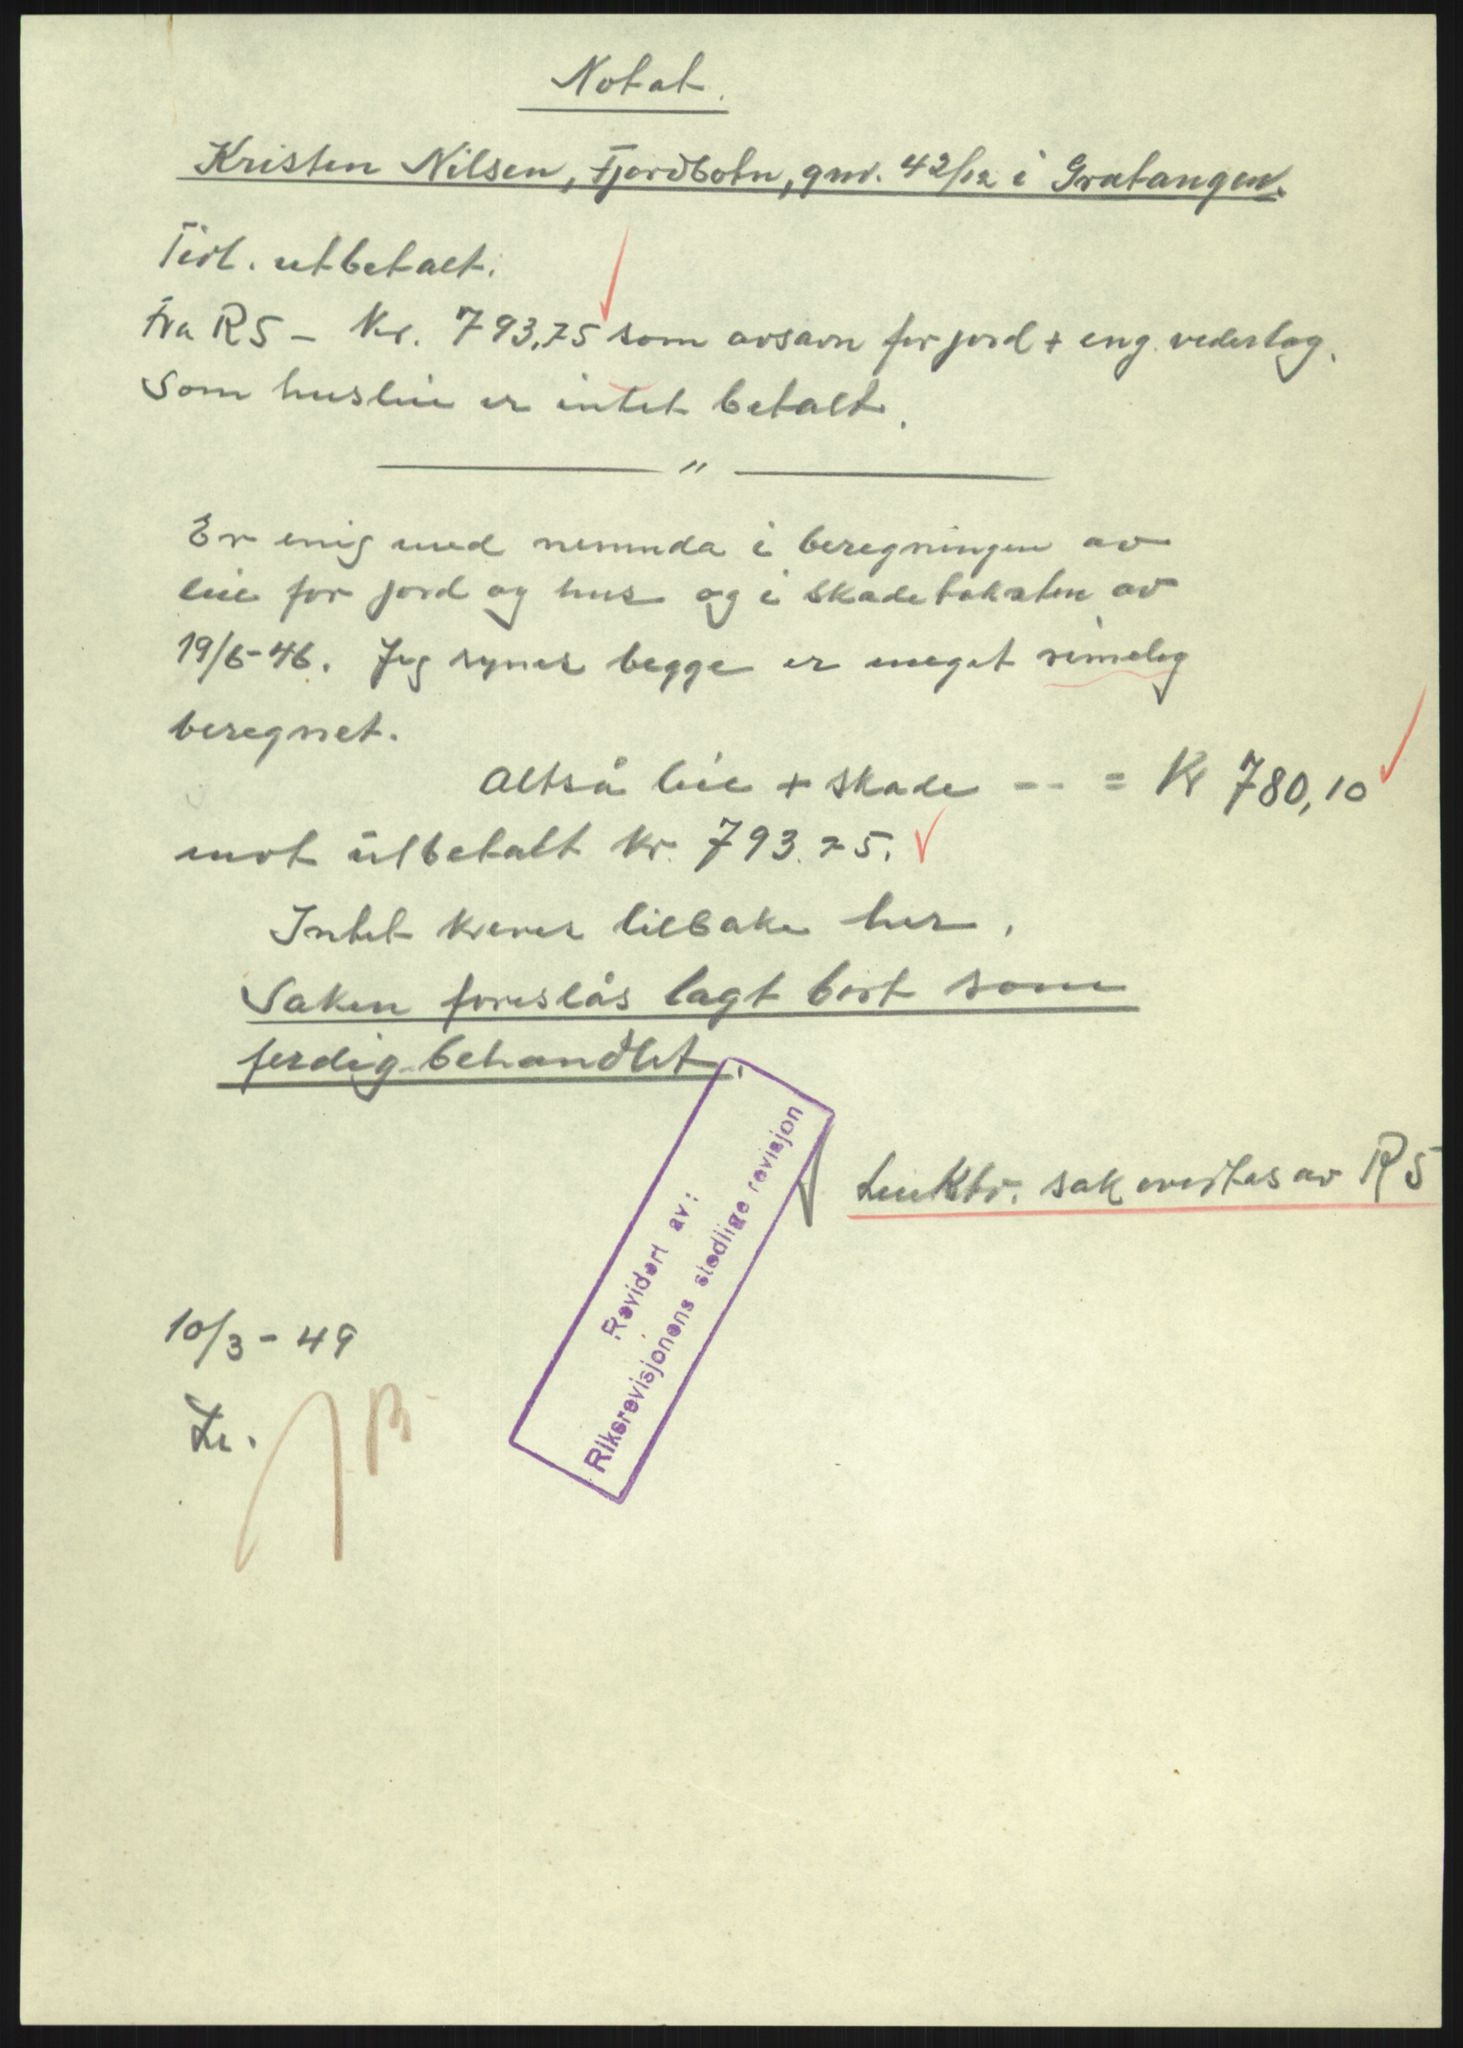 Notat.
Kristen Nilsen, Fjordbotn, gnr. 42/12 i Gratangen.
Tidl. utbetalt.
Fra RS – Kr. 793,75 som avsavn for jord + eng. vederlag.
Som husleie er intet betalt.
"
Er enig med nemnda i beregningen av
leie for jord og hus og i skadetaksten av
19/6-46. Jeg synes begge er meget rimelig
beregnet.
Altså leie + skade -- = Kr 780,10
mot utbetalt kr. 793.75.
Intet kreves tilbake her.
Saken foreslås lagt bort som
ferdig-behandlet.
sak av RS
Revidert av:
Riksrevisjonens stedlige revisjon
10/3-49